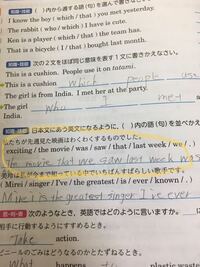 知識・技能 内から適する語(句)を選んで
I know the boy ( which / that ) you met yesterday.
The rabbit ( who / which ) I have is cute.
Ken is a player ( which / that ) the team has.
That is a bicycle ( I / that ) bought last month.
知識・技能 次の2文をほぼ同じ意味を表す1文に書きかえなさい。
This is a cushion. People use it on tatami.
This is a cushion which people use
The girl is from India. I met her at the party.
The girl who I met
India.
知識・技能 日本文にあう英文になるように, ( )内の語句を並べか
たちが先週見た映画はわくわくするものでした。
exciting / the movie / was / saw / that / last week / we / .
The movie that we saw last week was
( Mirei / singer / I've / the greatest / is / ever / known / . )
Mirei is the greatest singer I've ever
次のようなとき, 英語ではどのように言いますか。
相手に行動するようにすすめるとき。
Take action.
ビニールのごみはどうなるのかとたずねるとき。
What happens plastic waste